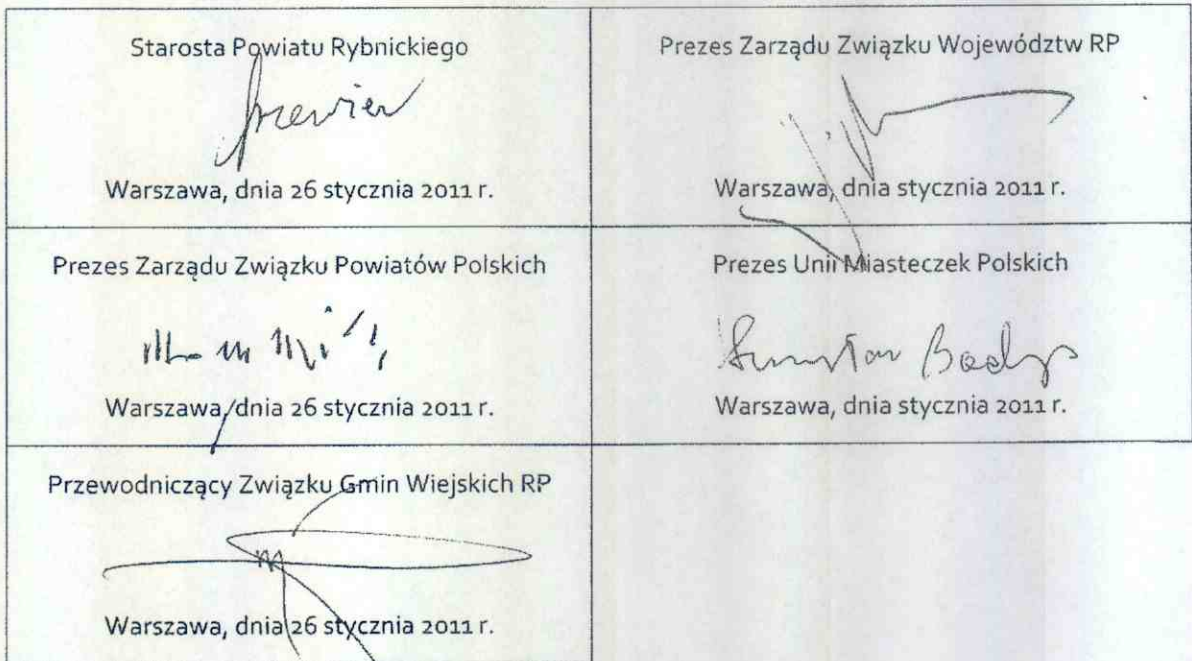 Starosta Powiatu Rybnickiego
Warszawa, dnia 26 stycznia 2011 r.
Prezes Zarządu Związku Województw RP
Warszawa, dnia stycznia 2011 r.
Prezes Zarządu Związku Powiatów Polskich
Warszawa, dnia 26 stycznia 2011 r.
Prezes Unii Miasteczek Polskich
Warszawa, dnia stycznia 2011 r.
Przewodniczący Związku Gmin Wiejskich RP
Warszawa, dnia 26 stycznia 2011 r.